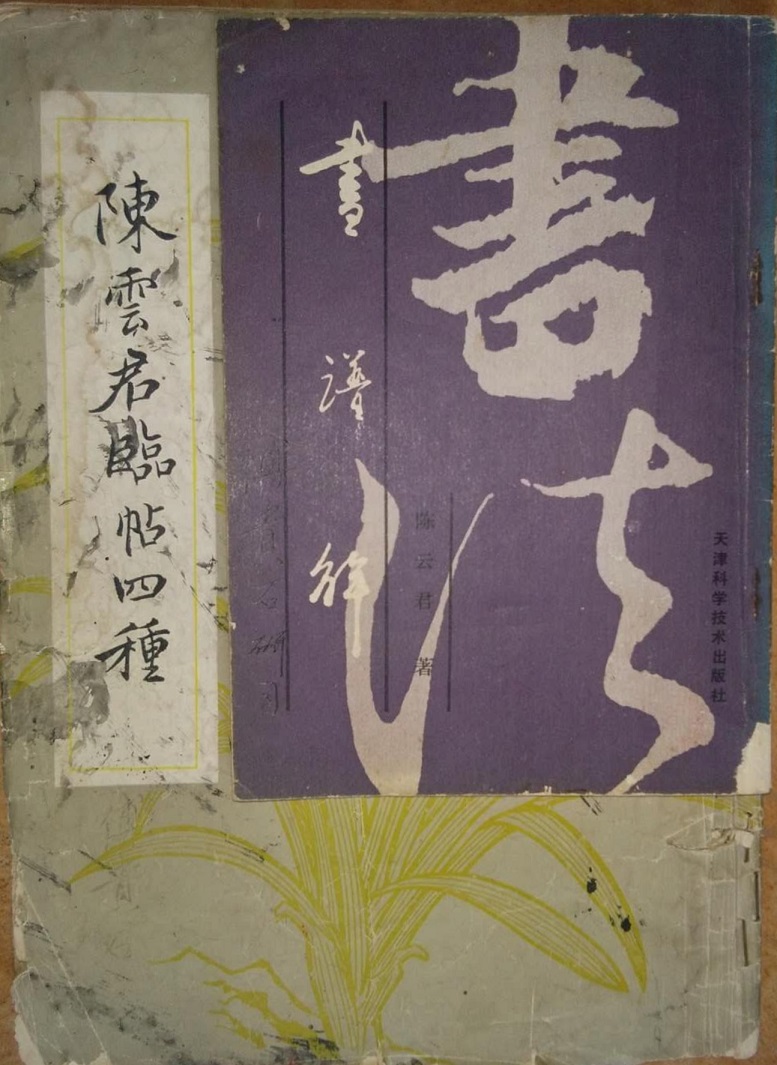 陳雲君臨帖四種
書法
書譜
陈云君 著
天津科学技术出版社